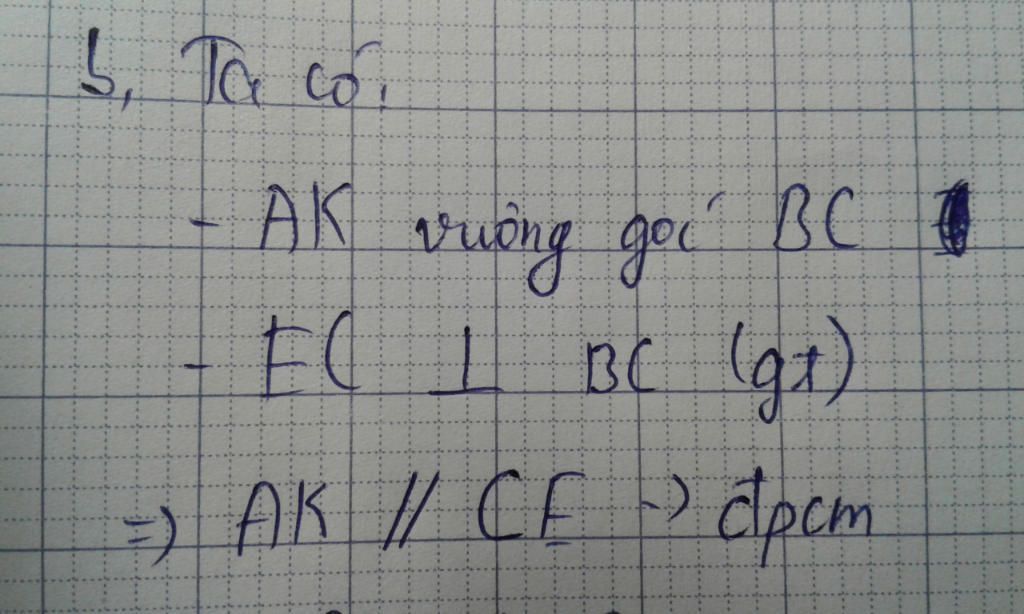 b, Ta có:
- AK vuông goć BC
- EC ⊥ BC (gt)
=> AK // CE -> đpcm